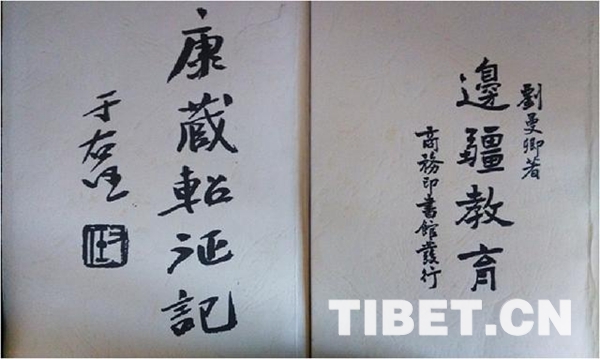 康藏軺征記
于右任
劉曼卿著
邊疆教育
商務印書館發行
TIBET.CN